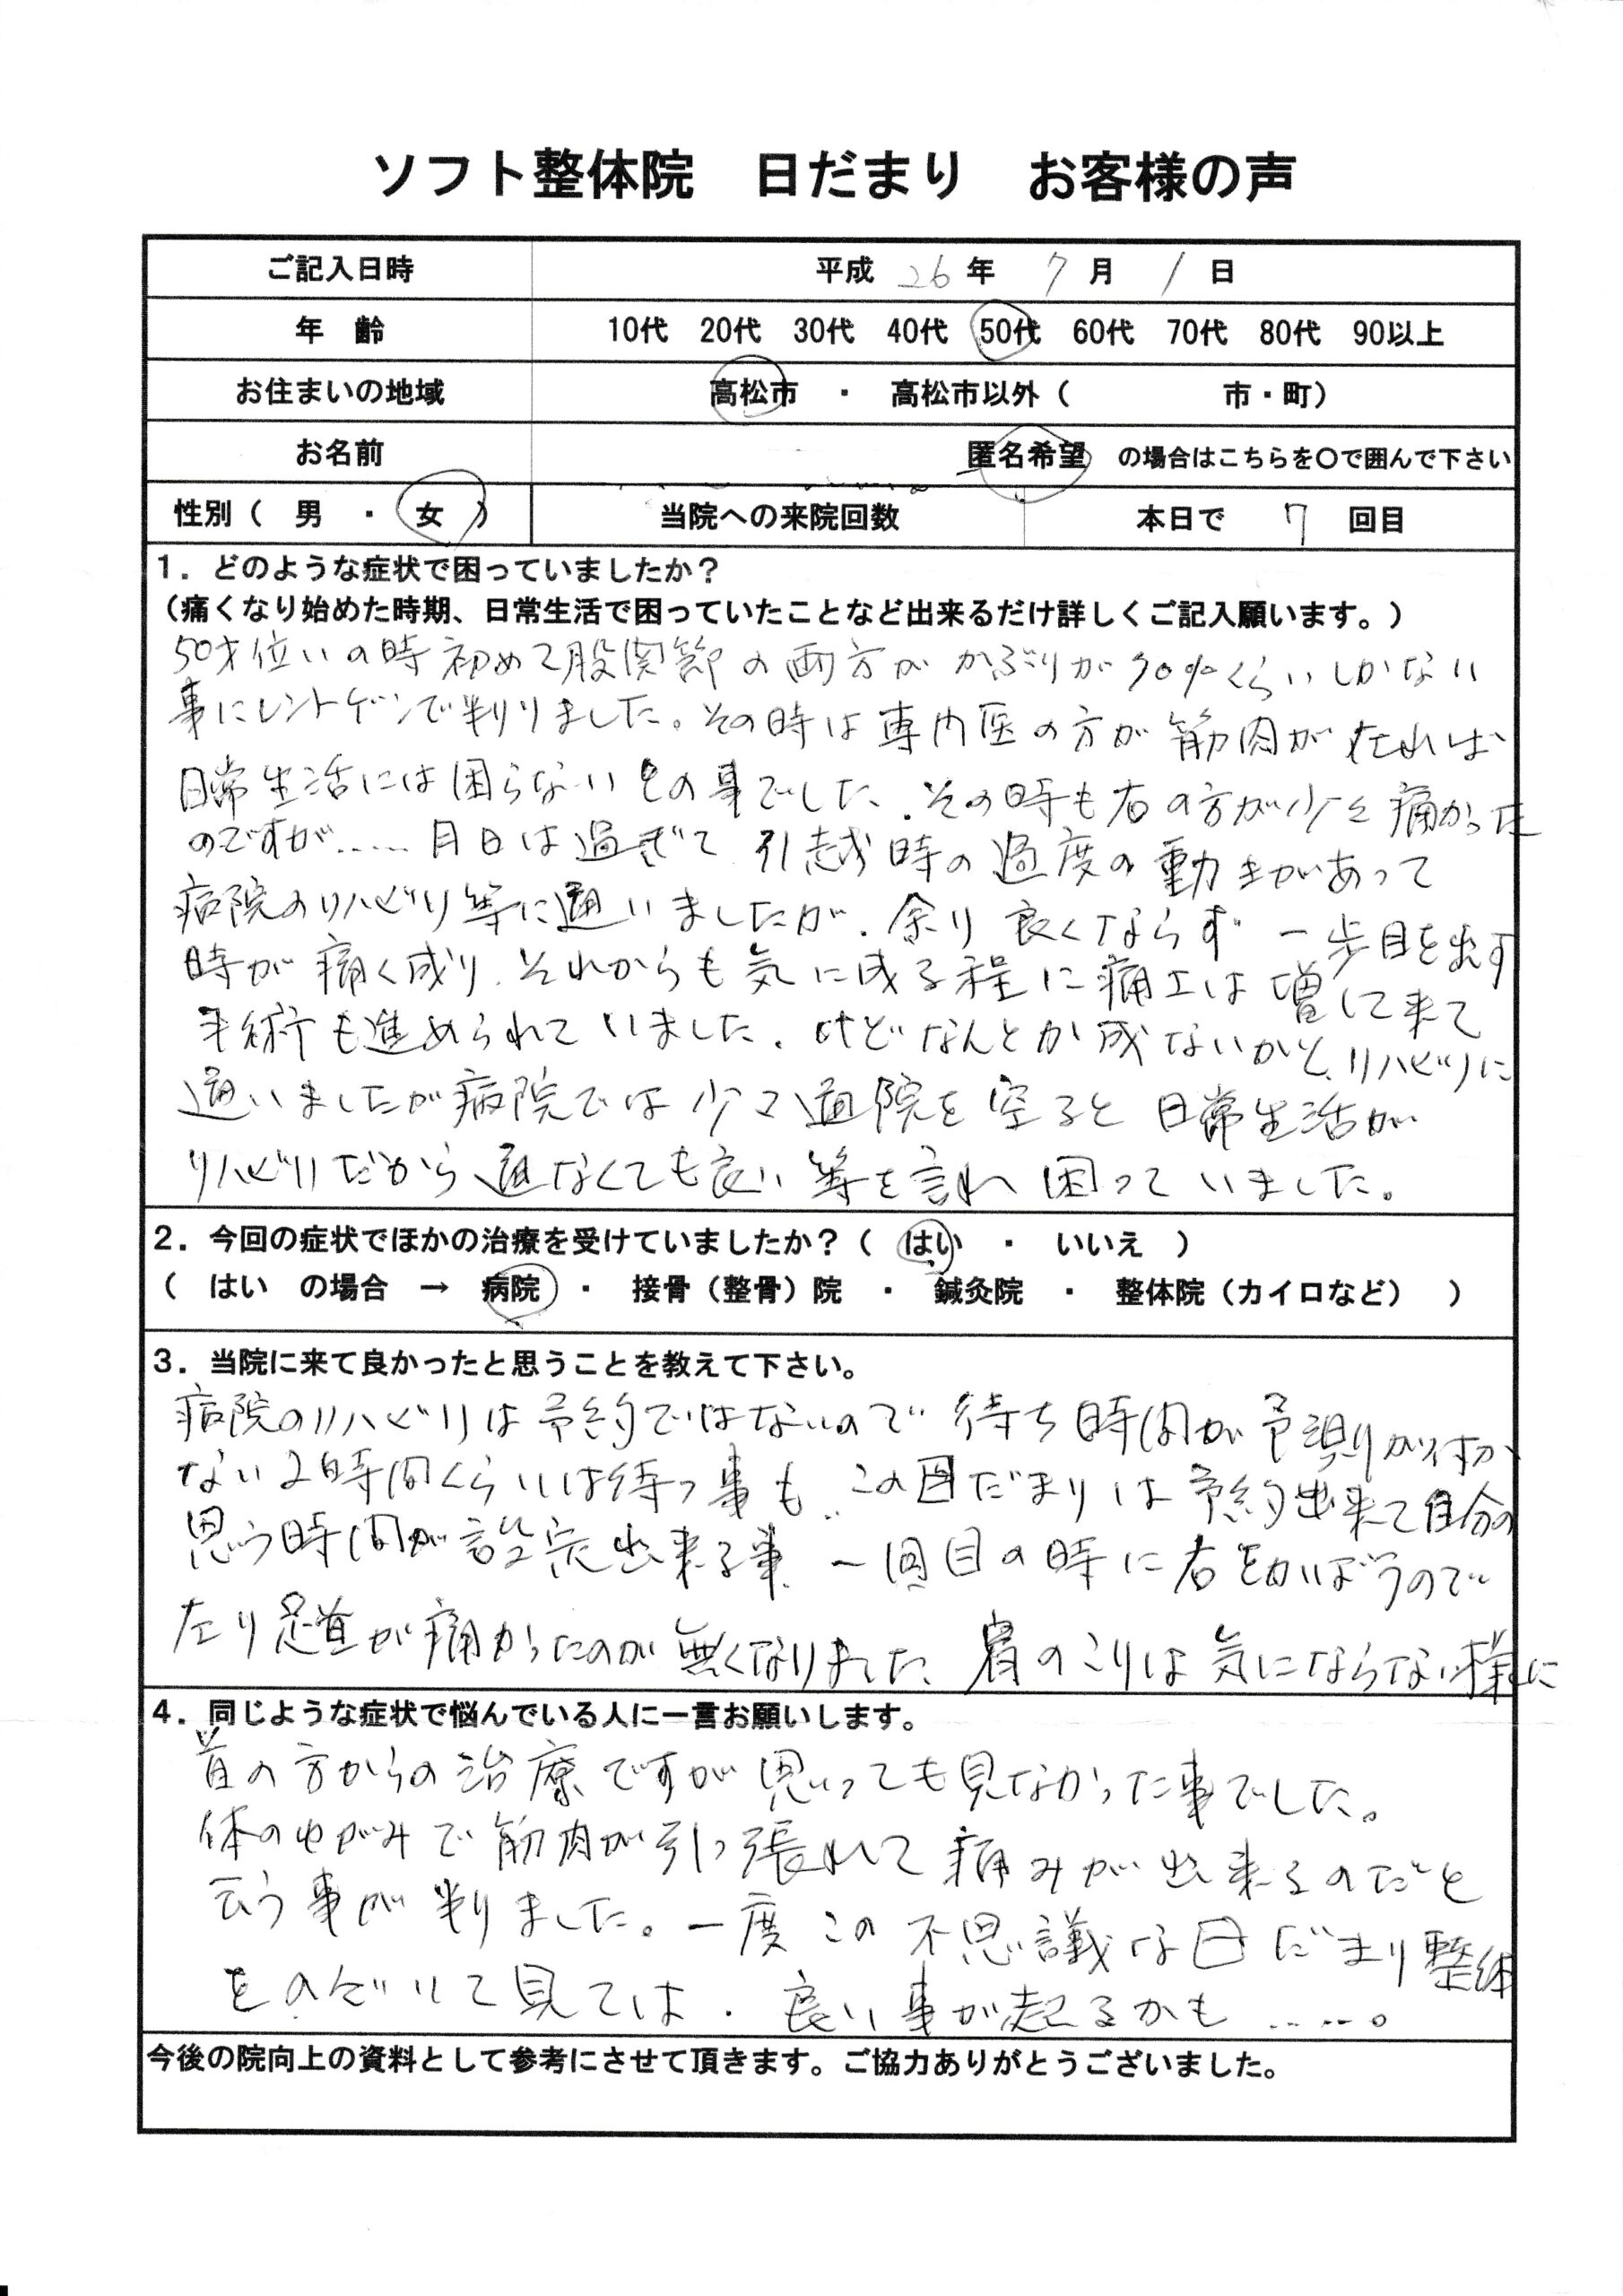 ソフト整体院　日だまり　お客様の声
ご記入日時　平成 26 年 7 月 1 日
年　齢　10代　20代　30代　40代　50代　60代　70代　80代　90以上
お住まいの地域　高松市　・　高松市以外（　　　市・町）
お名前　匿名希望　の場合はこちらを〇で囲んで下さい
性別（　男　・　女　）　当院への来院回数　本日で　7　回目
1．どのような症状で困っていましたか？
（痛くなり始めた時期、日常生活で困っていたことなど出来るだけ詳しくご記入願います。）
50才位いの時初めて股関節の両方がかぶりが70%くらいしかない
事にレントゲンで判りました。その時は専門医の方が筋肉が在れば
日常生活には困らないとの事でした、その時も右の方が少々痛かった
のですが……月日は過ぎて引越時の過度の動きがあって
病院のリハビリ等に通いましたが、余り良くならず一歩目を出す
時が痛く成り、それからも気に成る程に痛エは増して来て
手術も進められていました。けどなんとか成ないかと、リハビリに
通いましたが病院では少々通院を空ると日常生活が
リハビリだから通なくても良い等を言れ困っていました。
2．今回の症状でほかの治療を受けていましたか？（　はい　・　いいえ　）
（　はい　の場合　→　病院　・　接骨（整骨）院　・　鍼灸院　・　整体院（カイロなど）　）
3．当院に来て良かったと思うことを教えて下さい。
病院のリハビリは予約ではないので待ち時間が予測が付か
ない2時間くらいは待つ事も、この日だまりは予約出来て自分の
思う時間が設定出来る事、一回目の時に右をかばうので
左り足首が痛かったのが無くなりました、肩のこりは気にならない様に
4．同じような症状で悩んでいる人に一言お願いします。
首の方からの治療ですが思っても見なかった事でした。
体のゆがみで筋肉が引っ張れて痛みが出来るのだと
云う事が判りました。一度この不思議な日だまり整体
をのぞいて見ては、良い事が起るかも……。
今後の院向上の資料として参考にさせて頂きます。ご協力ありがとうございました。